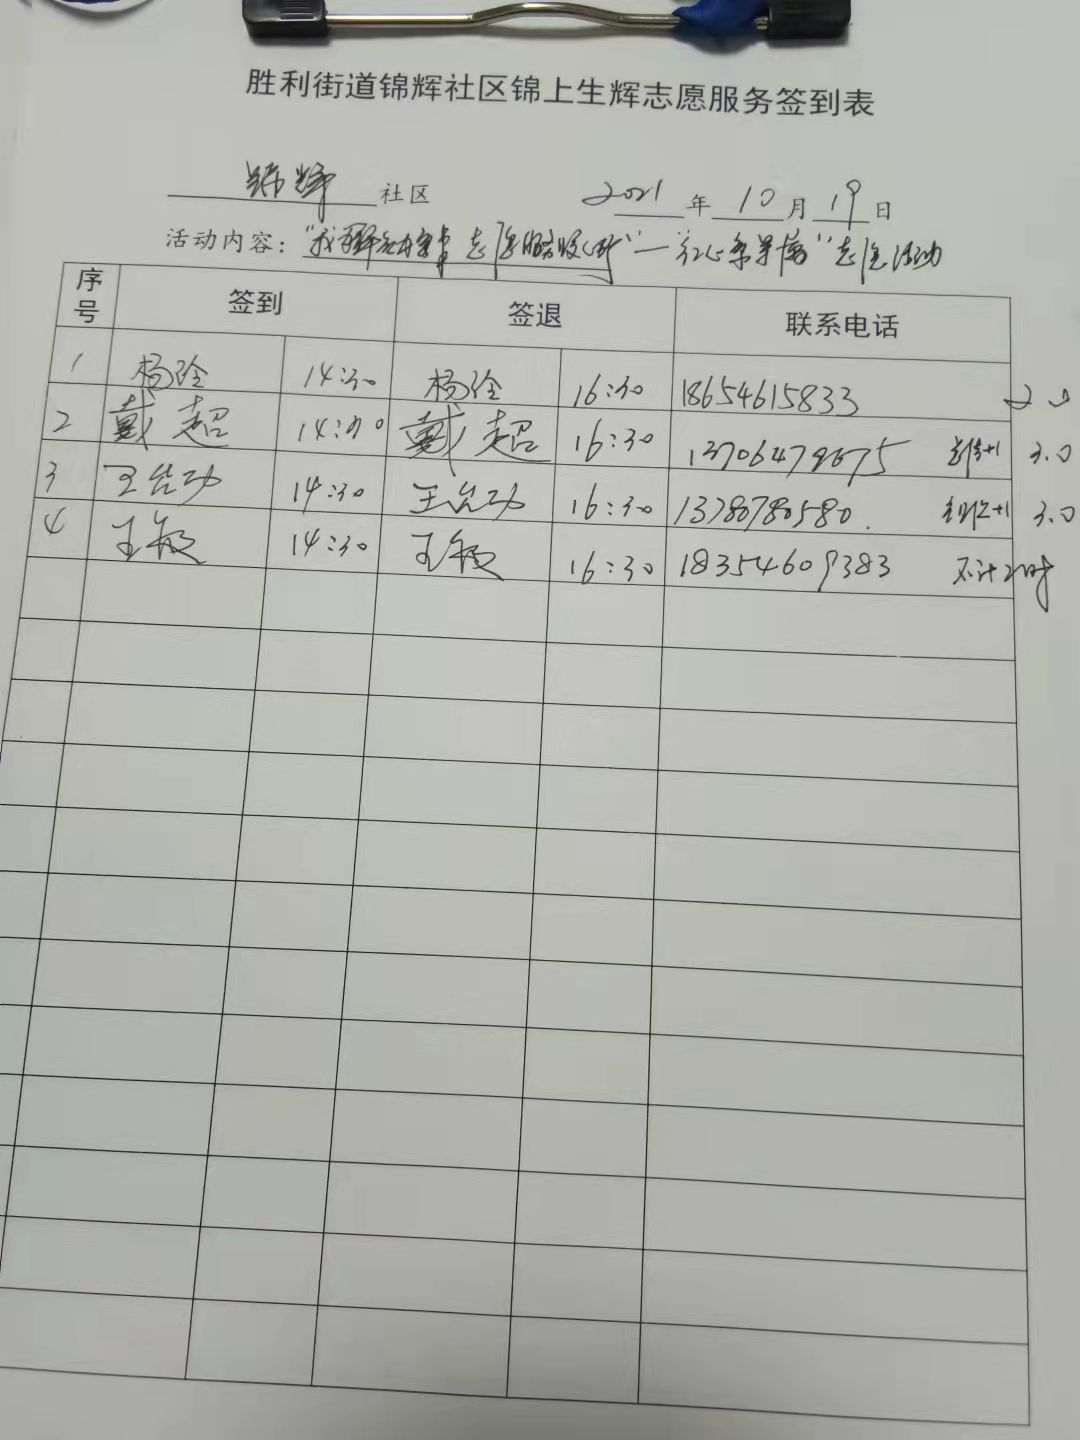 胜利街道锦辉社区锦上生辉志愿服务签到表
锦辉 社区 2021 年 10 月 19 日
活动内容：“我 志愿服务 ”— 志愿活动
序号 签到 签退 联系电话
1 杨玲 14:30 杨玲 16:30 18654615833 2.0
2 戴超 14:30 戴超 16:30 +1 3.0
3 14:30 16:30 13780780580. +1 3.0
4 王敏 14:30 王敏 16:30 18354609383 不计时